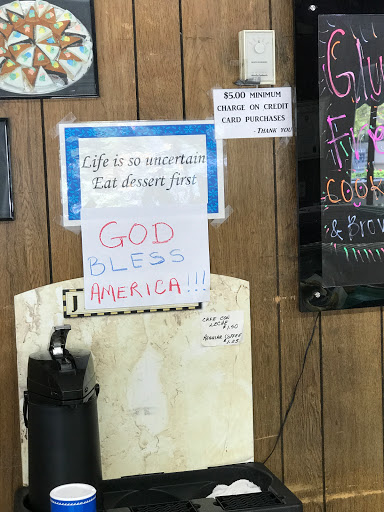 $5.00 MINIMUM
CHARGE ON CREDIT
CARD PURCHASES
- THANK YOU
Life is so uncertain
Eat dessert first
GOD
BLESS
AMERICA!!!
CAFE CON
LECHE $1.50
REGULAR COFFEE
Glu
Fr
COOK
& Brow